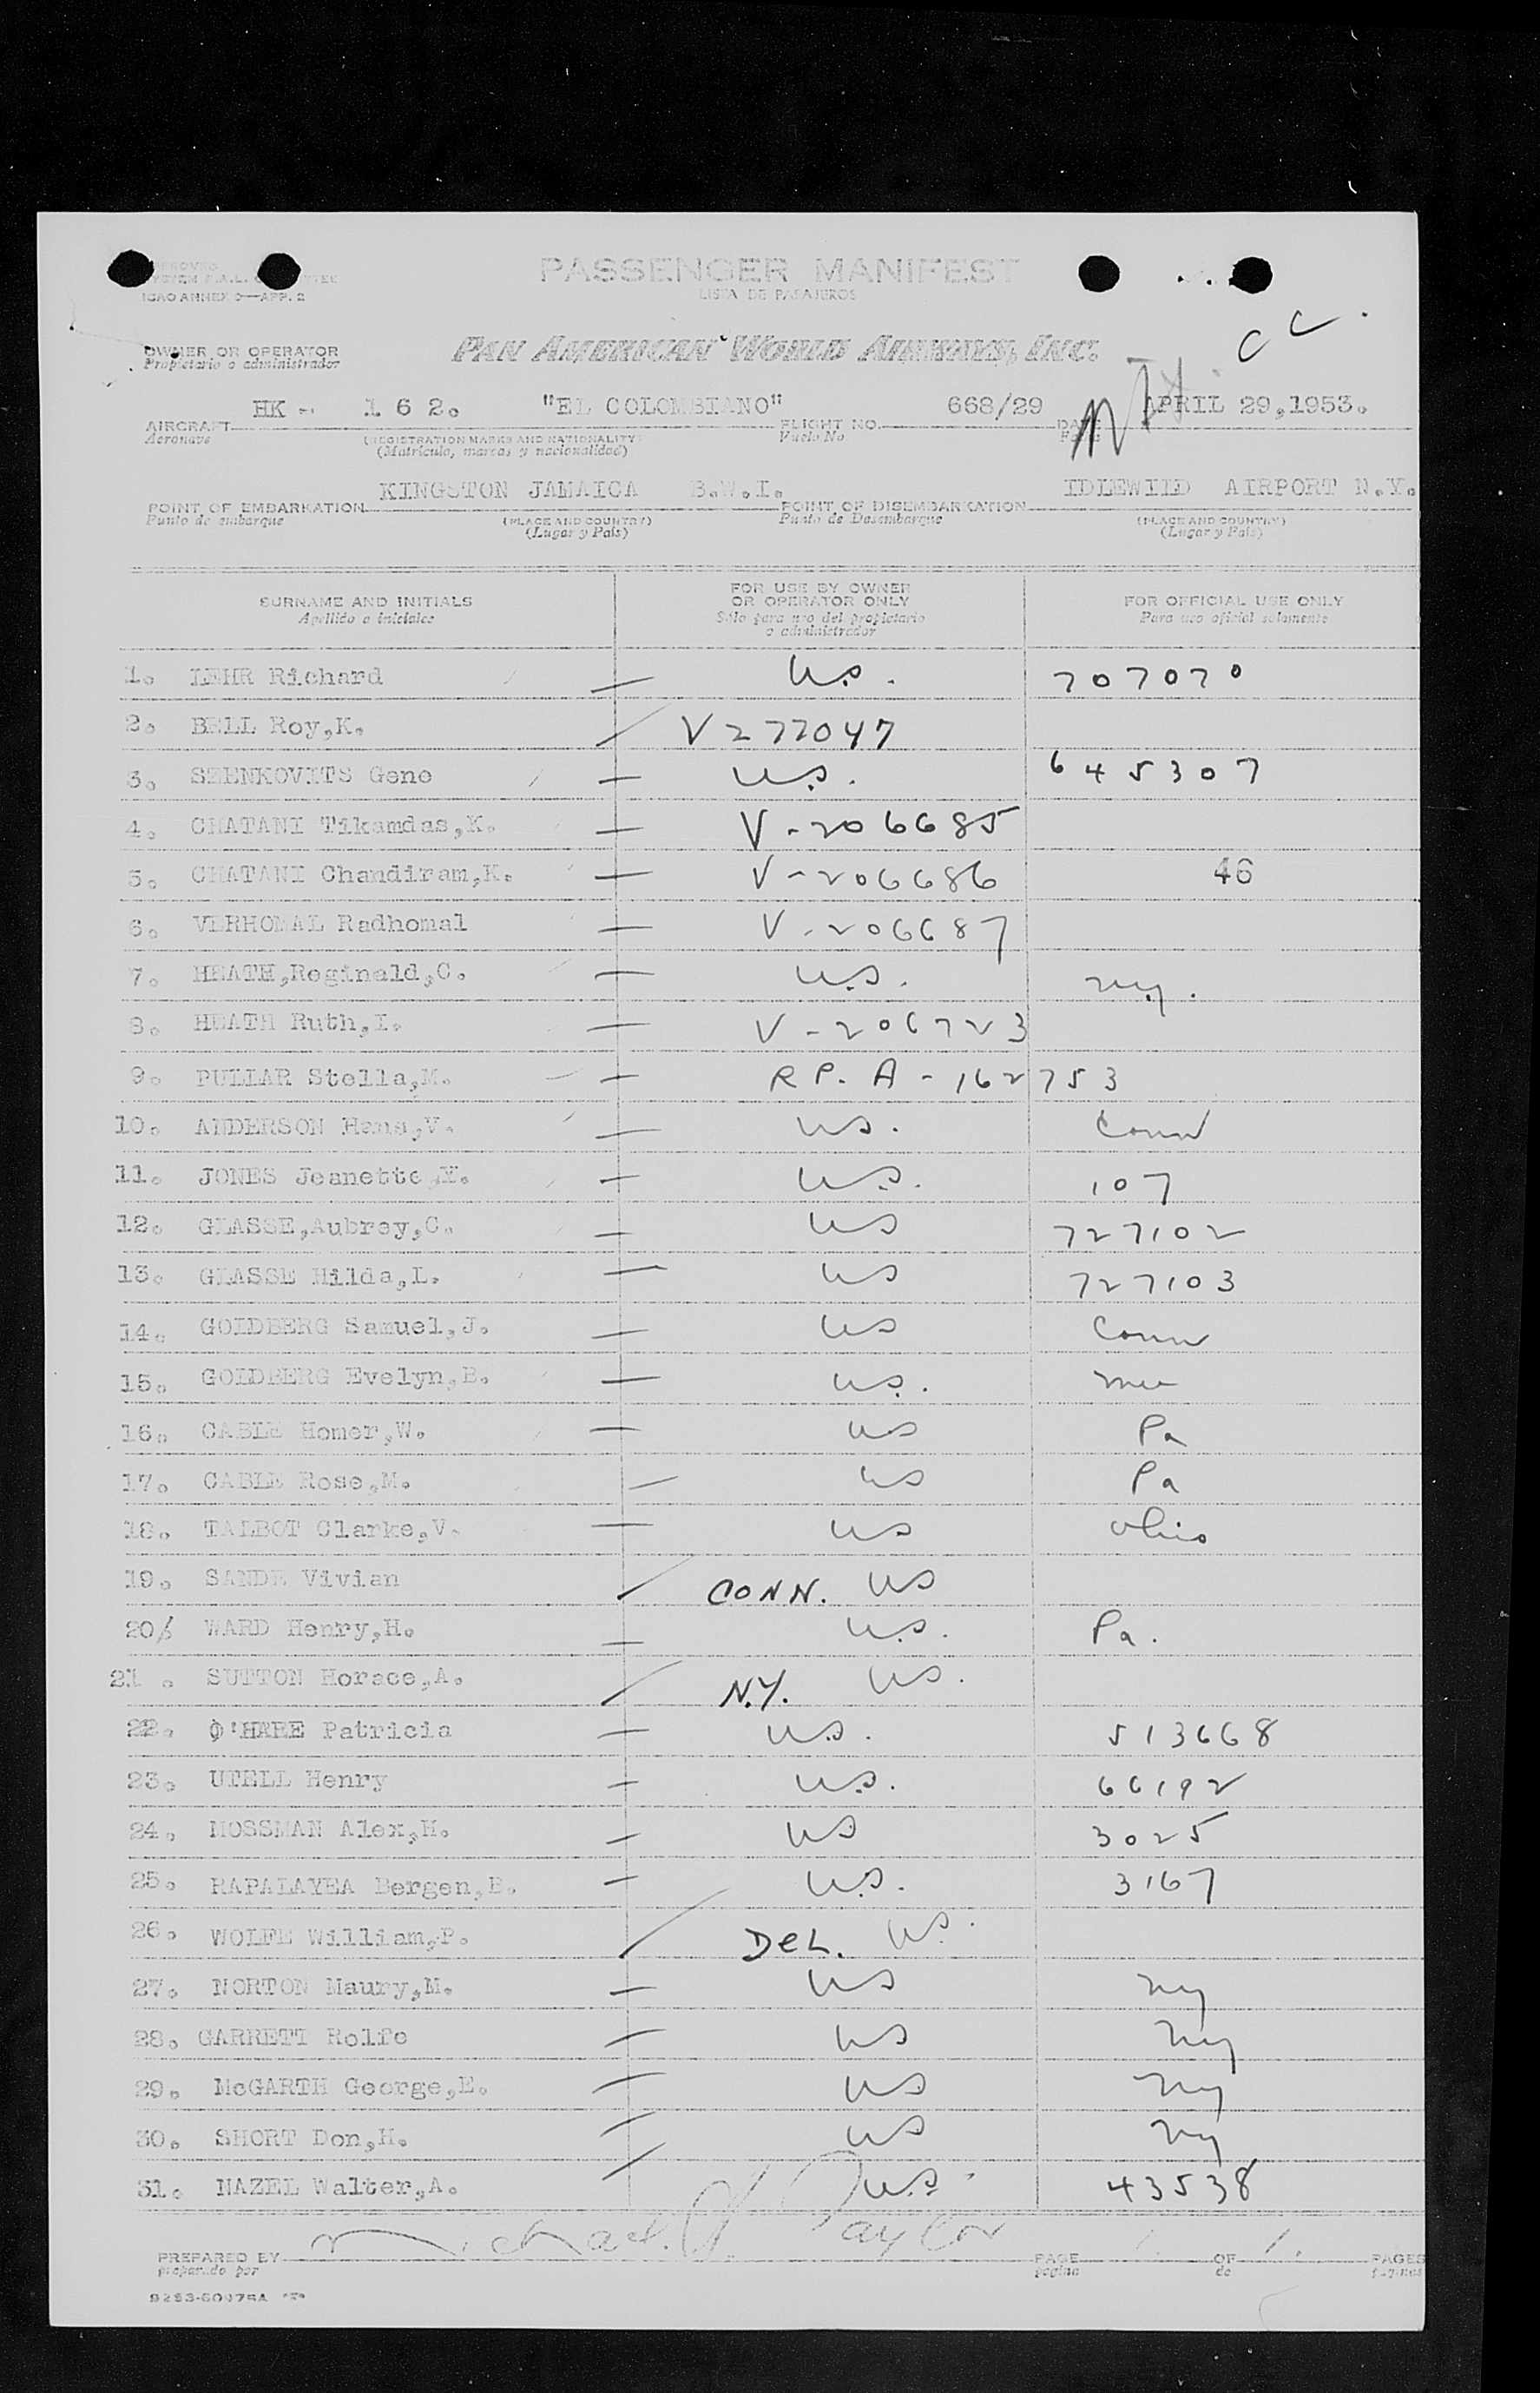 APPROVED
ICAO ANNEX 9—APP. 2
PASSENGER MANIFEST
LISTA DE PASAJEROS
CC.
OWNER OR OPERATOR
Propietario o administrador
PAN AMERICAN WORLD AIRWAYS, INC.
AIRCRAFT HK - 1 6 2. "EL COLOMBIANO" FLIGHT NO. 668/29 DATE APRIL 29,1953.
Aeronave (REGISTRATION MARKS AND NATIONALITY) Vuelo No Fecha
(Matricula, marcas y nacionalidad)
POINT OF EMBARKATION KINGSTON JAMAICA B.W.I. POINT OF DISEMBARKATION IDLEWILD AIRPORT N.Y.
Punto de embarque (PLACE AND COUNTRY) Punto de Desembarque (PLACE AND COUNTRY)
(Lugar y País) (Lugar y País)
SURNAME AND INITIALS FOR USE BY OWNER OR OPERATOR ONLY FOR OFFICIAL USE ONLY
Apellido e iniciales Sólo para uso del propietario o administrador Para uso oficial solamente
1. LEHR Richard U.S. 707070
2. BELL Roy,K. V277047
3. SZENKOVITS Geno U.S. 645307
4. CHATANI Tikamdas,K. V-206685
5. CHATANI Chandiram,K. V-206686 46
6. VERHOMAL Radhomal V-206687
7. HEATH,Reginald,C. U.S. N.Y.
8. HEATH Ruth,I. V-206723
9. PULLAR Stella,M. R.P. A-162753
10. ANDERSON Hans,V. U.S. Conn
11. JONES Jeanette,M. U.S. 107
12. GLASSE,Aubrey,C. US 727102
13. GLASSE Hilda,L. US 727103
14. GOLDBERG Samuel,J. US Conn
15. GOLDBERG Evelyn,B. U.S.
16. CABLE Homer,W. US Pa
17. CABLE Rose,M. US Pa
18. TALBOT Clarke,V. US Ohio
19. SANDE Vivian CONN. US
20. WARD Henry,H. U.S. Pa.
21. SUTTON Horace,A. N.Y. US.
22. O'HARE Patricia U.S. 513668
23. UTELL Henry U.S. 66192
24. MOSSMAN Alex,H. US 3025
25. RAPALAYEA Bergen,B. U.S. 3167
26. WOLFE William,P. DEL. US.
27. NORTON Maury,M. US NY
28. GARRETT Rolfe US NY
29. McGARTH George,E. US NY
30. SHORT Don,H. US NY
31. NAZEL Walter,A. U.S. 43538
PREPARED BY Michael Taylor PAGE 1. OF 1. PAGES
preparado por pagina de paginas